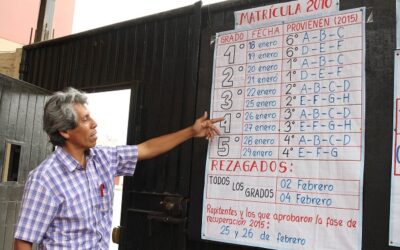 MATRÍCULA 2016
GRADO FECHA PROVIENEN (2015)
1° 18 enero 6° A-B-C
19 enero 6° D-E-F
2° 20 enero 1° A-B-C
21 enero 1° D-E-F
3° 22 enero 2° A-B-C-D
25 enero 2° E-F-G-H
4° 26 enero 3° A-B-C-D
27 enero 3° E-F-G-H
5° 28 enero 4° A-B-C-D
29 enero 4° E-F-G
REZAGADOS:
TODOS LOS GRADOS 02 Febrero
04 Febrero
Repitentes y los que aprobaron la fase de
recuperación 2015:
25 y 26 de Febrero